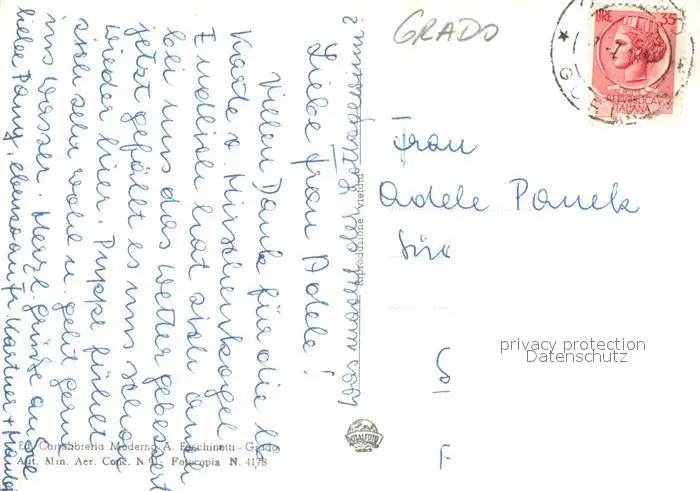 GRADO
LIRE 35
POSTE
REPVBBLICA
ITALIANA
Frau
Adele Panek
privacy protection
Datenschutz
was macht der Lottogewinn?
Liebe Frau Adele!
Vielen Dank für die lb.
Karte v. Hirschenkogel.
Endlich hat sich auch
bei uns das Wetter gebessert
jetzt gefällt es uns schon
wieder hier. Puppe fühlt
sich sehr wohl u. geht gern
ins Wasser. Herzl. Grüße
liebe Pany, ebenso
Riproduzione vietata
Ed. Cartolibreria Moderna A. Facchinetti - Grado
Aut. Min. Aer. Conc. N. Fotocopia N. 4178